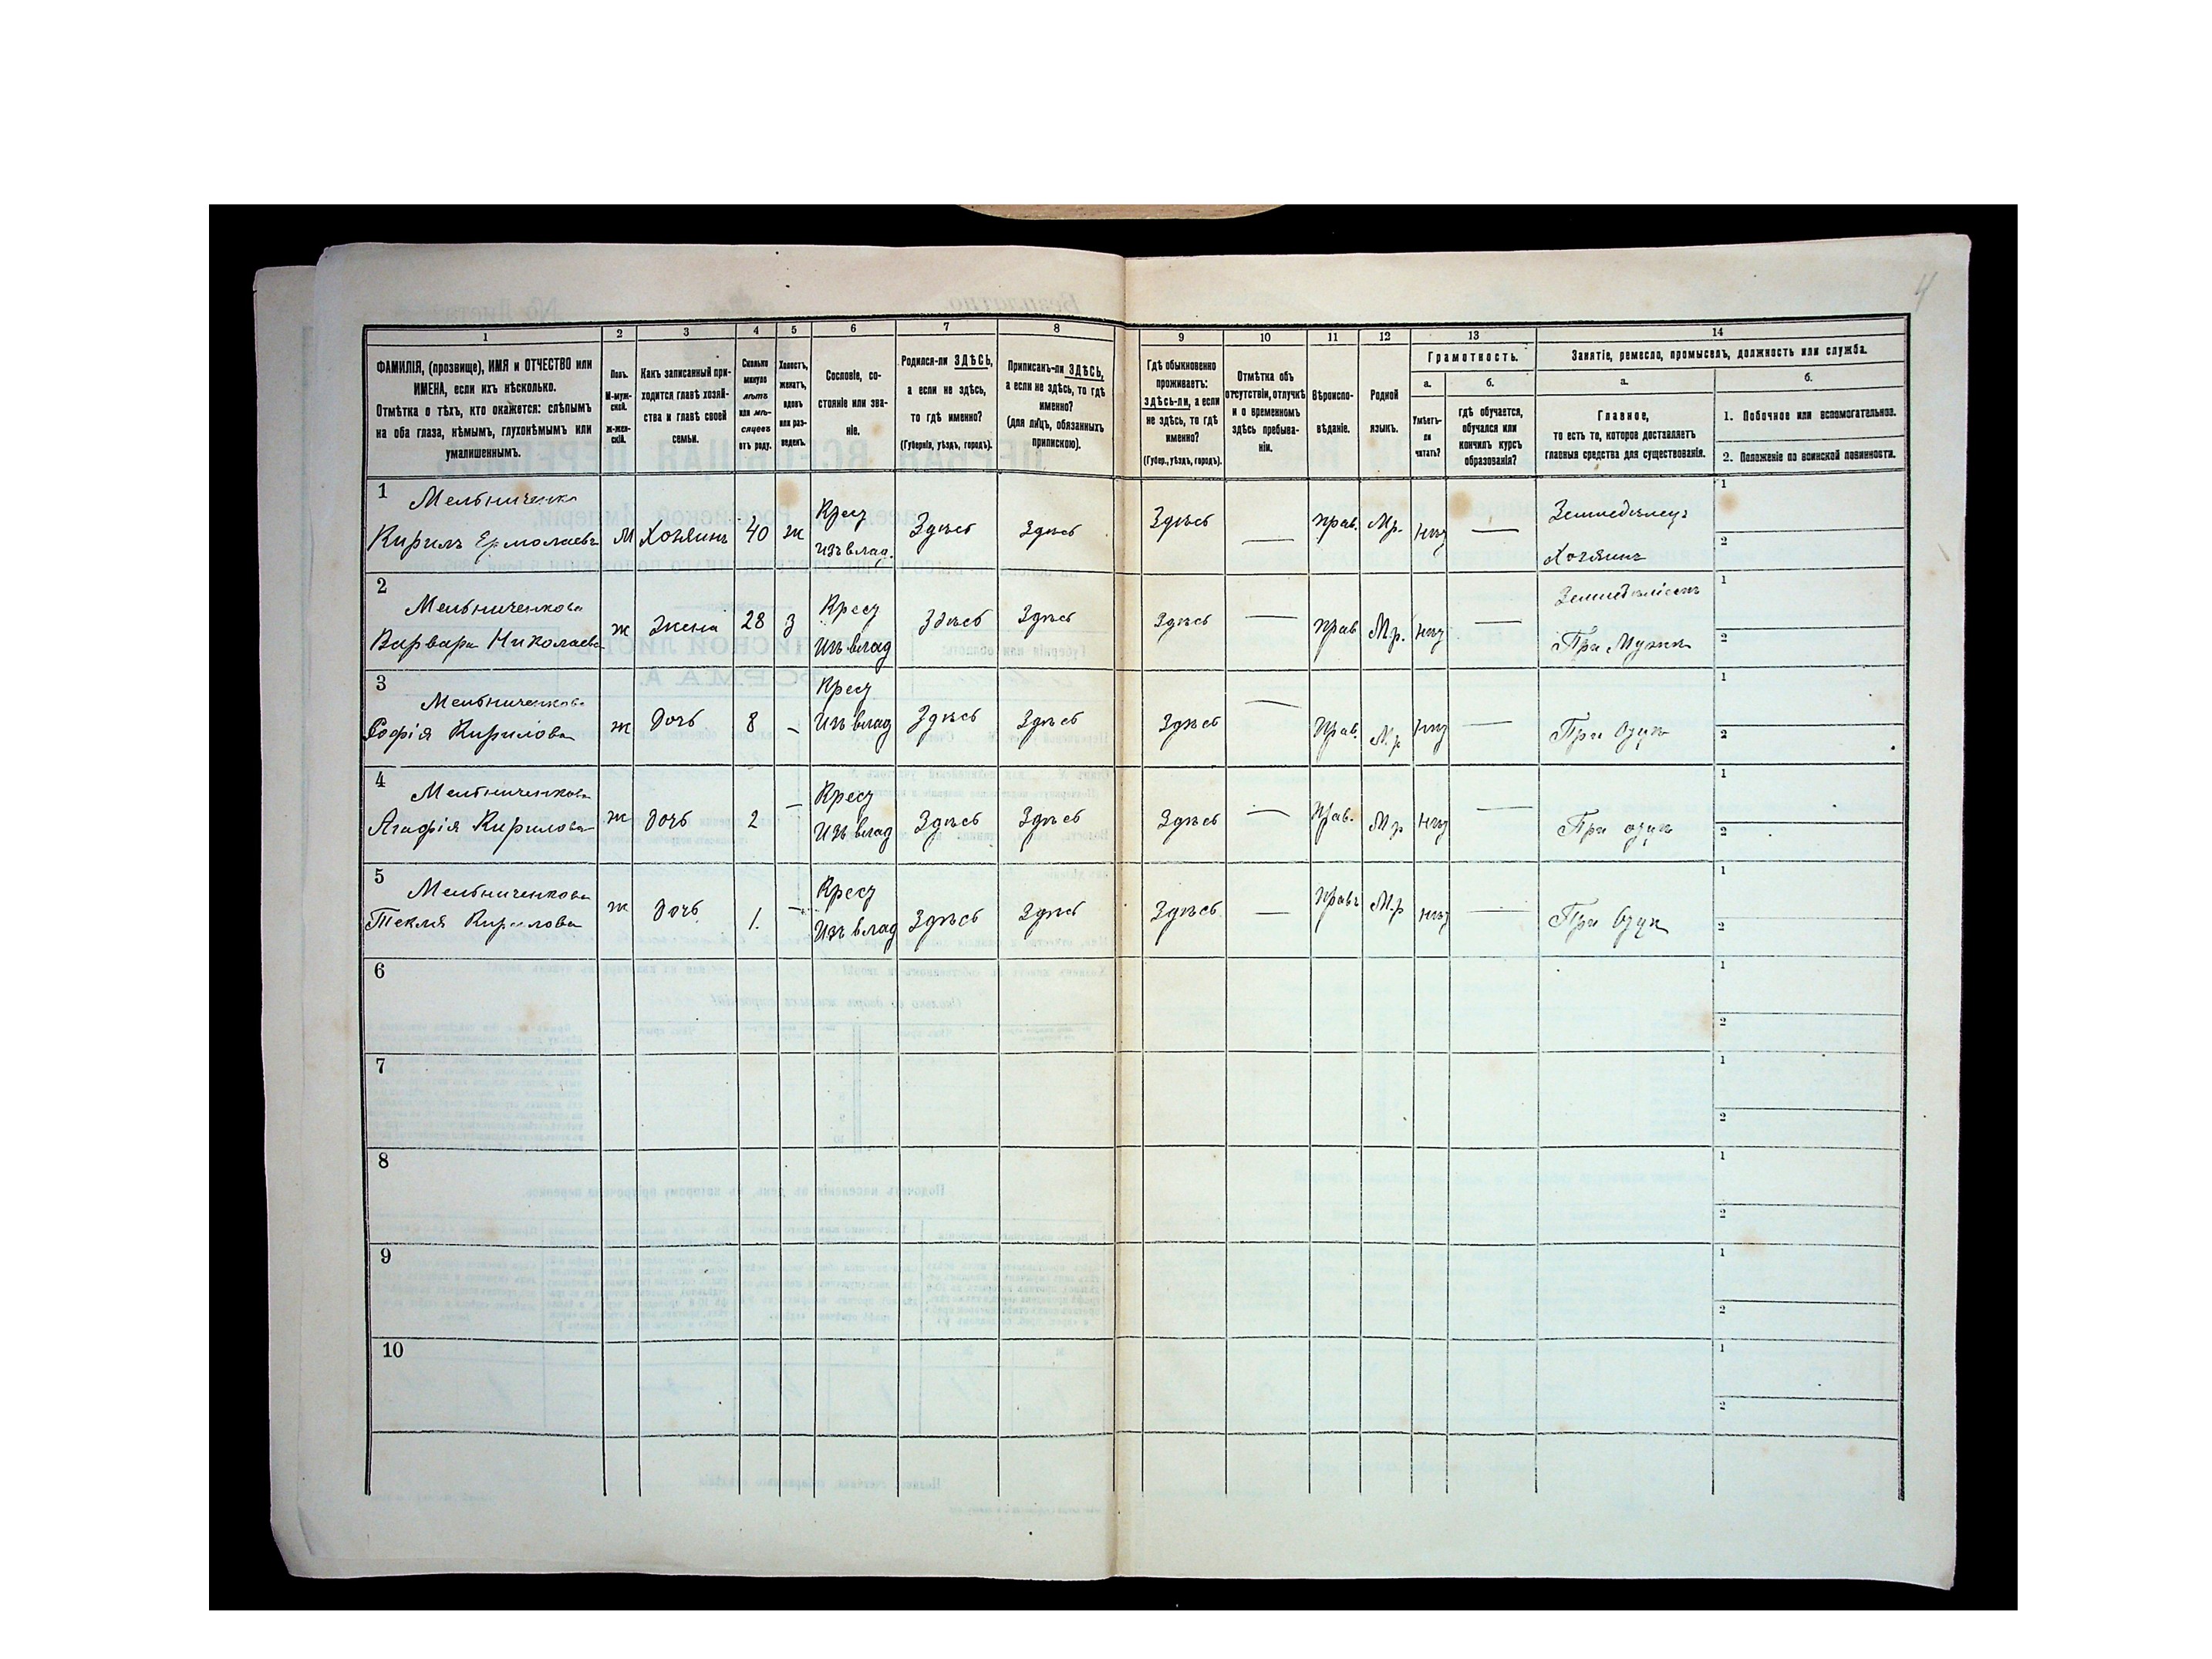 4
1 2 3 4 5 6 7 8 9 10 11 12 13 14
ФАМИЛІЯ, (прозвище), ИМЯ и ОТЧЕСТВО или
ИМЕНА, если ихъ нѣсколько.
Отмѣтка о тѣхъ, кто окажется: слѣпымъ
на оба глаза, нѣмымъ, глухонѣмымъ или
умалишеннымъ.
Полъ.
М-муж-
ской.
ж-жен-
скій.
Какъ записанный при-
ходится главѣ хозяй-
ства и главѣ своей
семьи.
Сколько
минуло
лѣтъ
или мѣ-
сяцевъ
отъ роду.
Холостъ,
женатъ,
вдовъ
или раз-
веденъ.
Сословіе, со-
стояніе или зва-
ніе.
Родился-ли ЗДѢСЬ,
а если не здѣсь,
то гдѣ именно?
(Губернія, уѣздъ, городъ).
Приписанъ-ли ЗДѢСЬ,
а если не здѣсь, то гдѣ
именно?
(для лицъ, обязанныхъ
припискою).
Гдѣ обыкновенно
проживаетъ:
здѣсь-ли, а если
не здѣсь, то гдѣ
именно?
(Губер., уѣздъ, городъ).
Отмѣтка объ
отсутствіи, отлучкѣ
и о временномъ
здѣсь пребыва-
ніи.
Вѣроиспо-
вѣданіе.
Родной
языкъ.
Грамотность.
а.
Умѣетъ-
ли
читать?
б.
гдѣ обучается,
обучался или
кончилъ курсъ
образованія?
Занятіе, ремесло, промыселъ, должность или служба.
а.
Главное,
то есть то, которое доставляетъ
главныя средства для существованія.
б.
1. Побочное или вспомогательное.
2. Положеніе по воинской повинности.
1 Мельниченко
Кирилъ Ермолаевъ М Хозяинъ 40 ж Крест изъ влад. Здѣсь Здѣсь Здѣсь — прав. Мр. нѣт — Земледѣлецъ Хозяинъ 1 2
2 Мельниченкова
Варвара Николаева ж Жена 28 з Крест Изъ влад Здѣсь Здѣсь Здѣсь — Прав М.р. нѣт — При Мужѣ 1 2
3 Мельниченкова
Софія Кирилова ж Дочь 8 - Крест Изъ влад Здѣсь Здѣсь Здѣсь — Прав. М.р нѣт — При Отцѣ 1 2
4 Мельниченкова
Агафія Кирилова ж дочь 2 — Крест Изъ влад Здѣсь Здѣсь Здѣсь — Прав. М р нѣт — При отцѣ 1 2
5 Мельниченкова
Текля Кирилова ж дочь 1. — Крест Изъ влад Здѣсь Здѣсь Здѣсь — Прав М.р нѣт — При Отцѣ 1 2
6 1 2
7 1 2
8 1 2
9 1 2
10 1 2